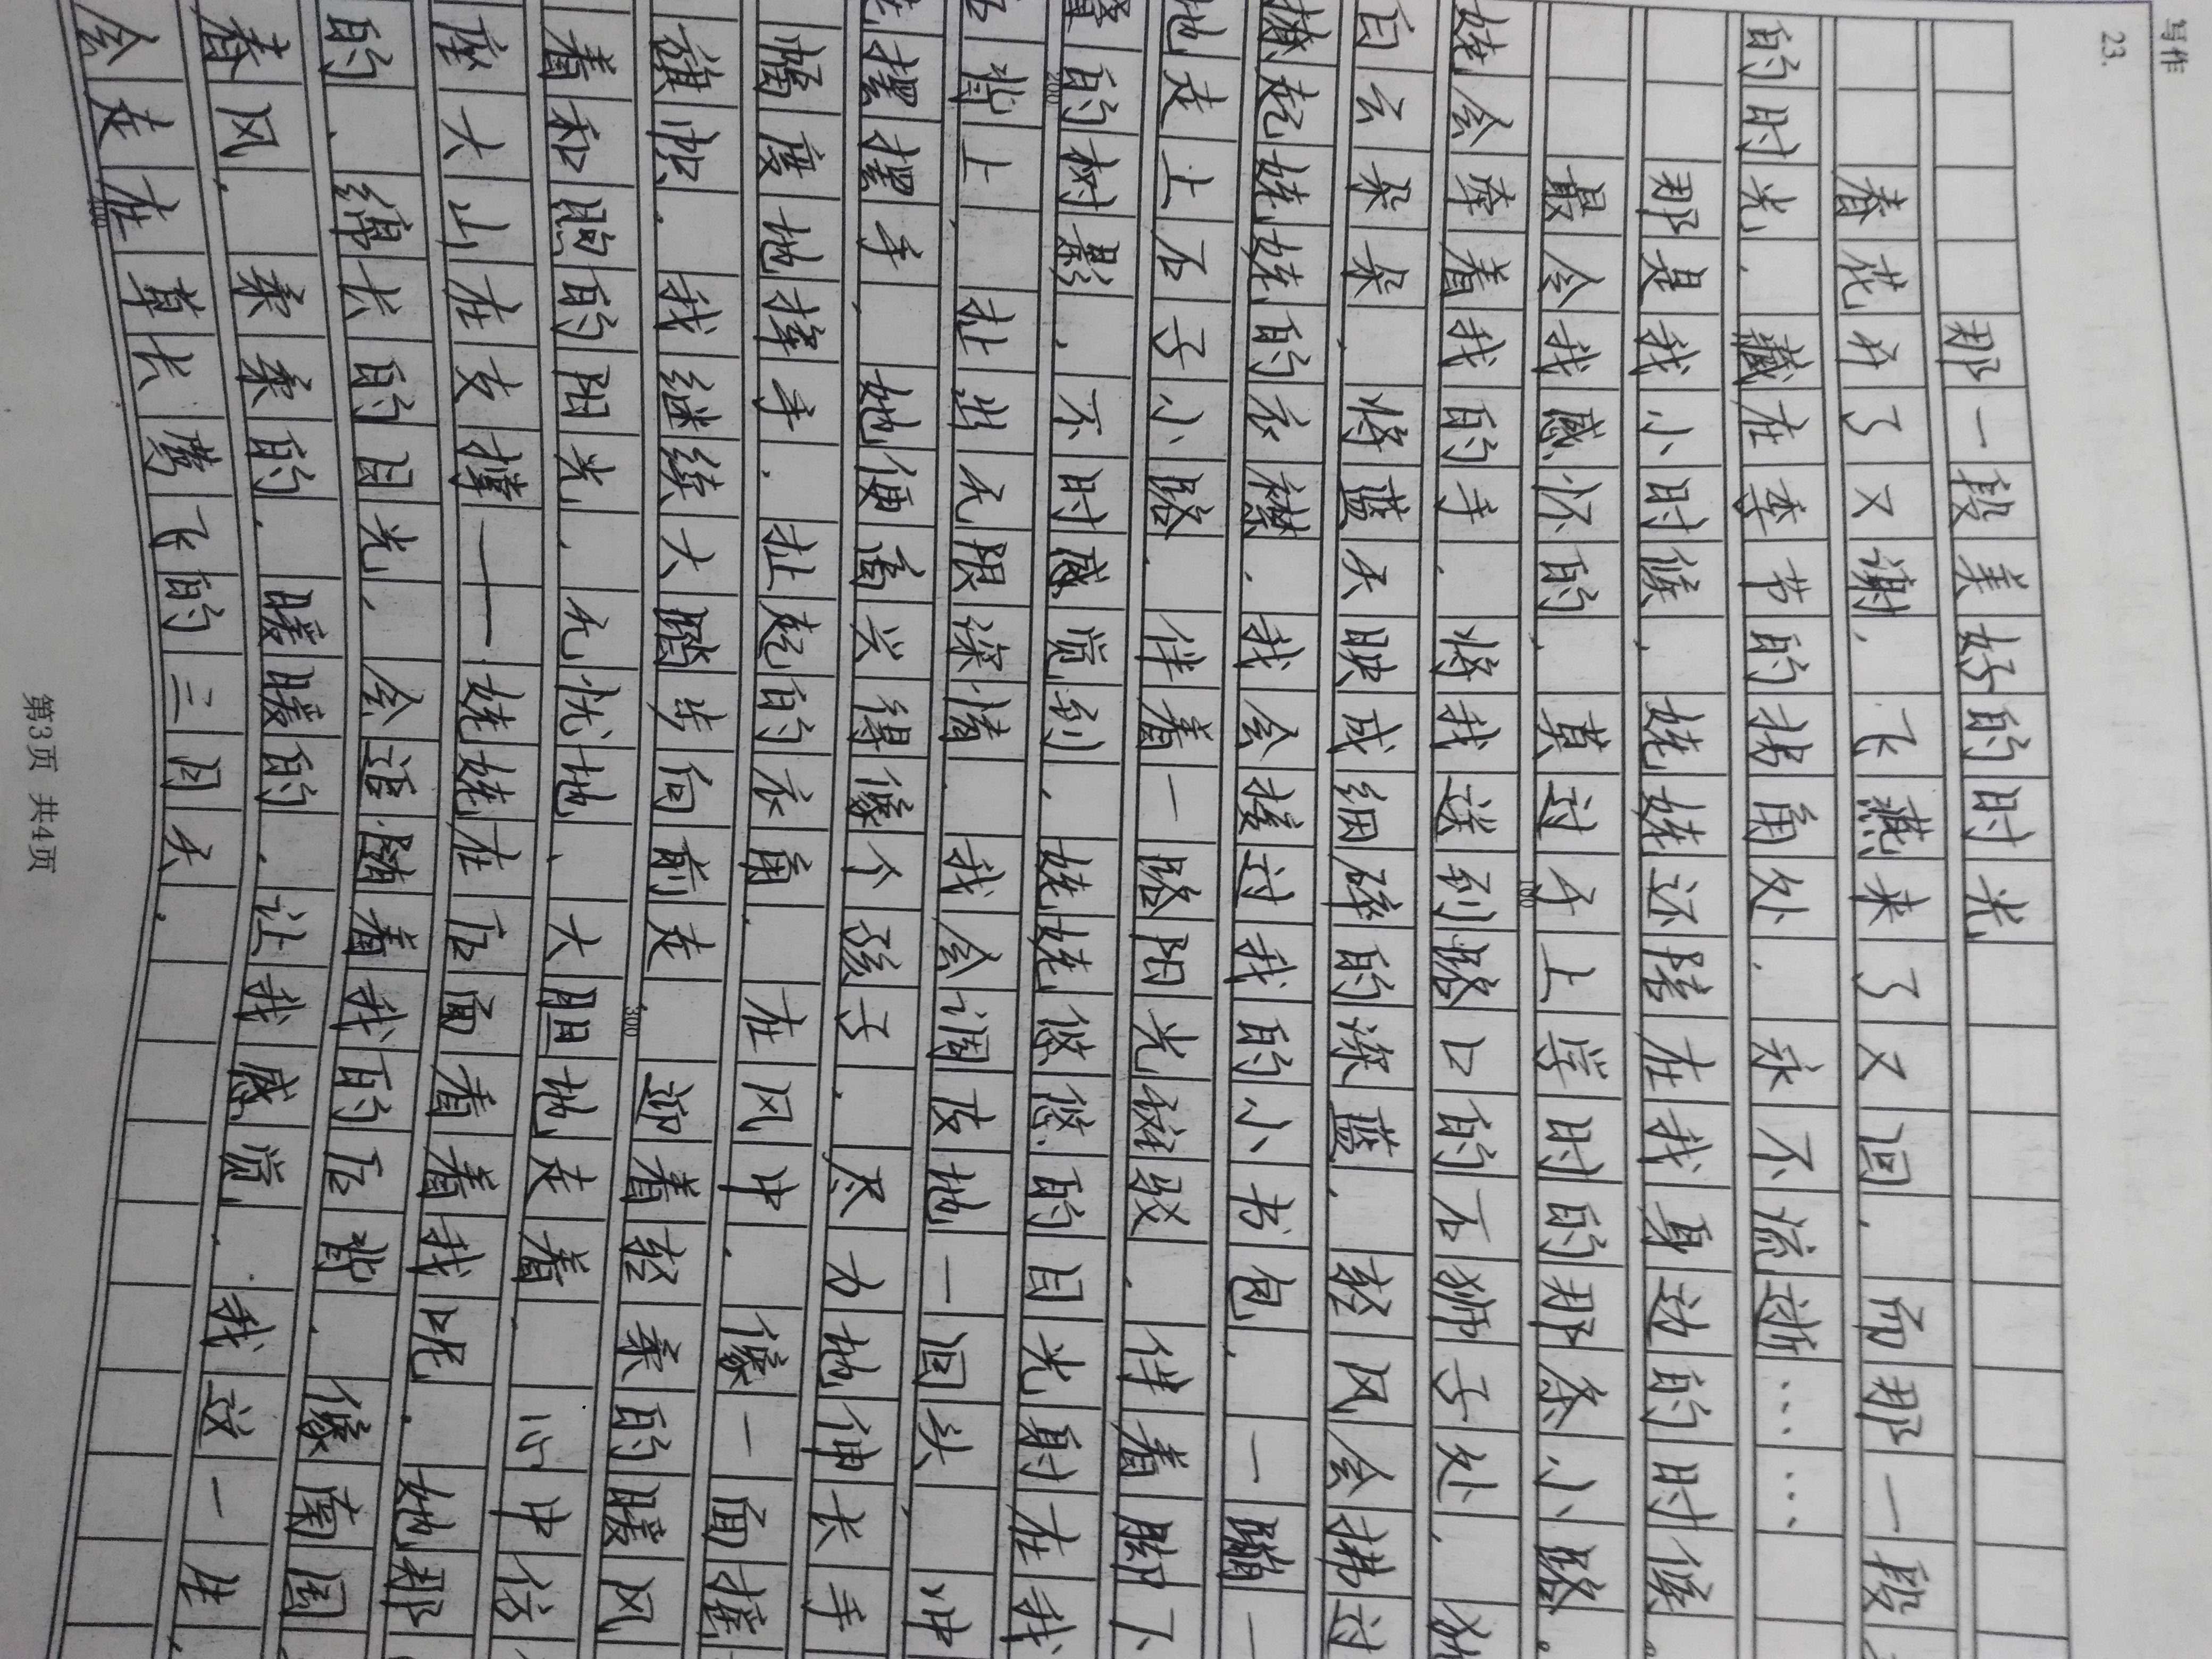 写作
23.
那一段美好的时光
春花开了又谢,飞燕来了又回,而那一段
的时光,藏在季节的拐角处,永不流逝……
那是我小时候,姥姥还陪在我身边的时候。
最令我感怀的,莫过于上学时的那条小路。
100
姥会牵着我的手,将我送到路口的石狮子处,
白云朵朵,将蓝天映成细碎的深蓝,轻风会拂过
撩起姥姥的衣襟,我会接过我的小书包,一蹦一
地走上石子小路,伴着一路阳光斑驳,伴着脚下
的树影,不时感觉到,姥姥悠悠的目光射在我
200
背上,扯出无限深情。我会调皮地一回头,冲
摆摆手,她便高兴得像个孩子,尽力地伸长手
幅度地挥手,扯起的衣角,在风中,像一面摇
旗帜。我继续大踏步向前走,迎着轻柔的暖风
300
着和煦的阳光,无忧地、大胆地走着,心中仿
座大山在支撑——姥姥在后面看着我呢。她那
的、绵长的目光,会追随着我的后背,像南国
春风,柔柔的,暖暖的,让我感觉,我这一生,
会走在草长莺飞的三月天。
400
第3页 共4页